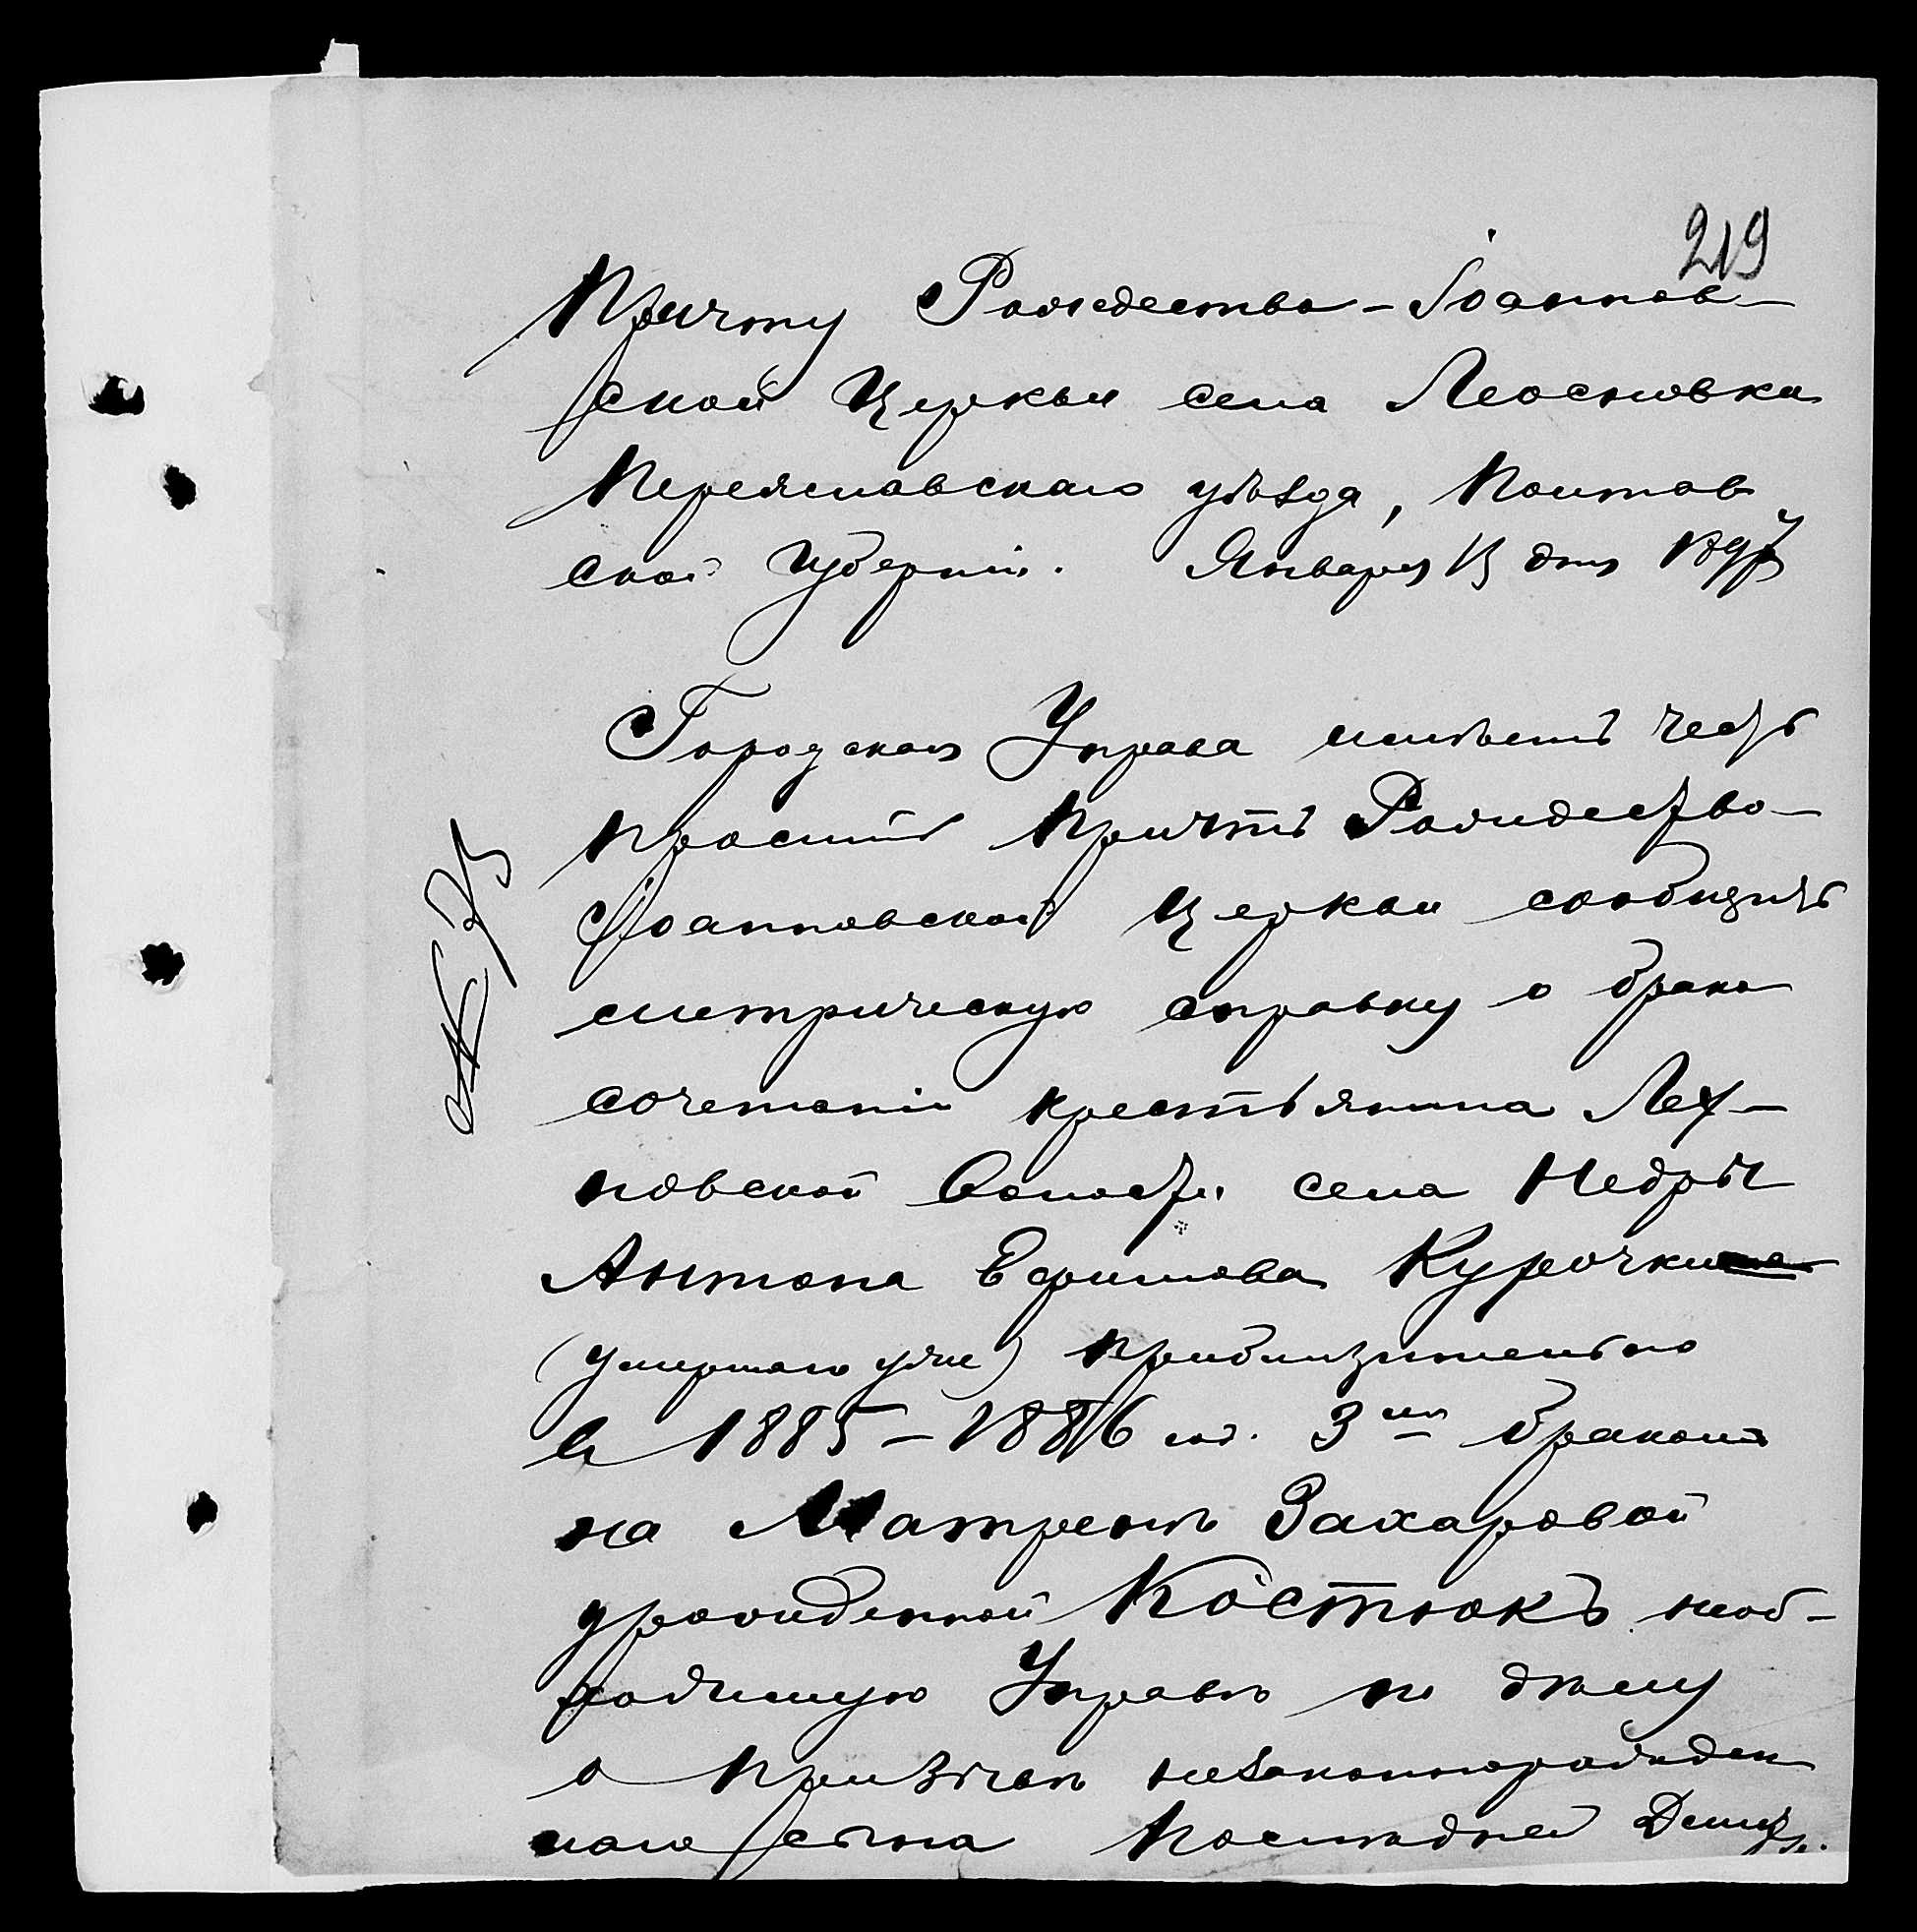 219
Причту Рождество-Іоаннов-
ской Церкви села
Переяславскаго уѣзда, Полтав
ской губерніи. Января 13 дня 1897
Городская Управа имѣетъ честь
просить Причтъ Рождество-
Іоанновской Церкви сообщить
метрическую справку о брако
сочетаніи крестьянина Лех-
новской волости села Недры
Антона Ефимова Курочки
(умершаго уже) приблизительно
въ 1885-1886 год. 3мъ бракомъ
на Матренѣ Захаровой
урожденной Костюкъ необ-
ходимую Управѣ по дѣлу
о призывѣ незаконнорожден
наго сына послѣдней